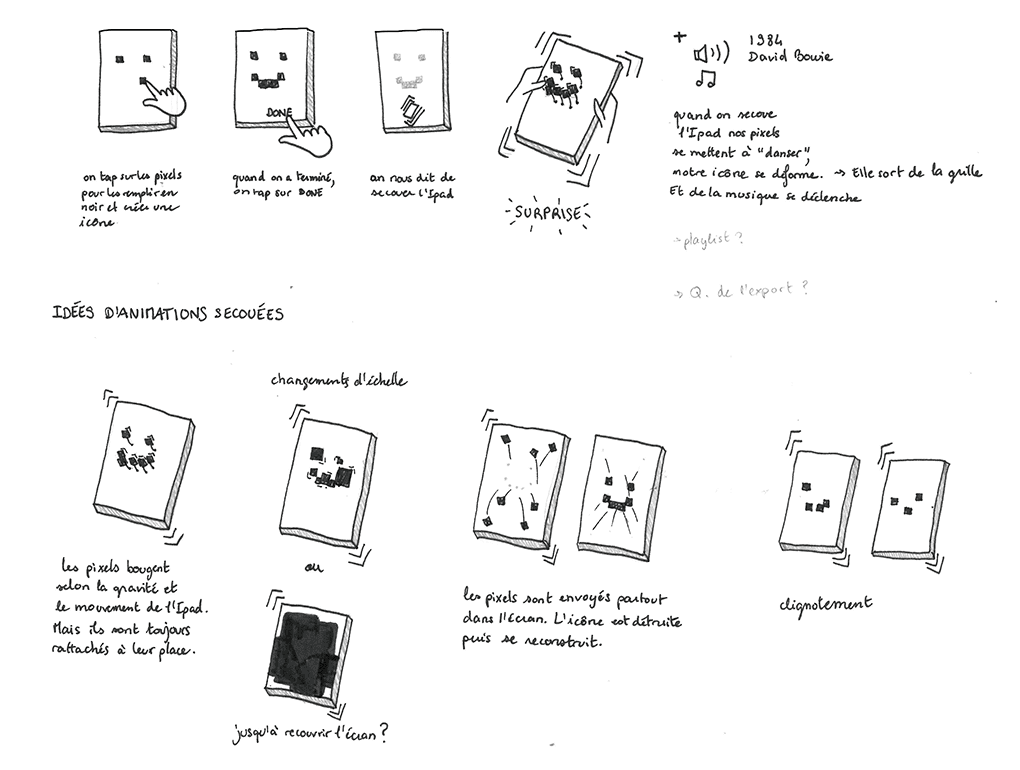 on tap sur les pixels
pour les remplir en
noir et créer une
icône
DONE
quand on a terminé,
on tap sur DONE
on nous dit de
secouer l'Ipad
SURPRISE
+
1984
David Bowie
quand on secoue
l'Ipad nos pixels
se mettent à "danser",
notre icône se déforme. → Elle sort de la grille
Et de la musique se déclenche
→ playlist ?
→ Q. de l'export ?
IDÉES D'ANIMATIONS SECOUÉES
les pixels bougent
selon la gravité et
le mouvement de l'Ipad.
Mais ils sont toujours
rattachés à leur place.
changements d'échelle
ou
jusqu'à recouvrir l'écran ?
les pixels sont envoyés partout
dans l'écran. L'icône est détruite
puis se reconstruit.
clignotement